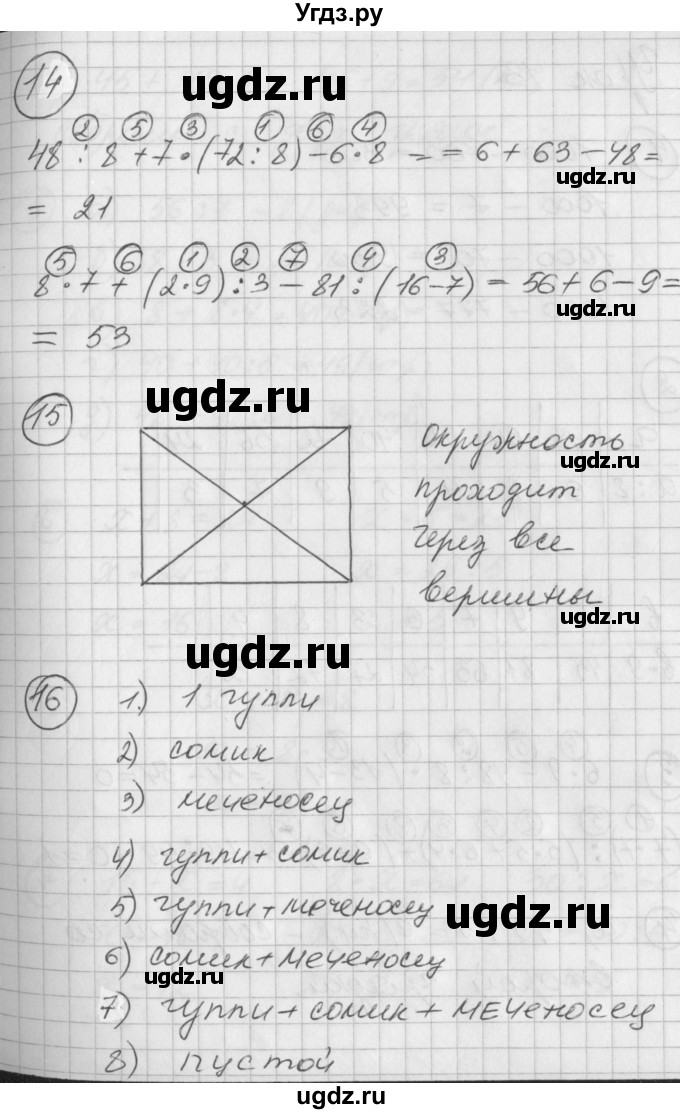 Угдз.ру
14
ugdz.ru
2 5 3 1 6 4
48 : 8 + 7 • (72 : 8) – 6 • 8 – = 6 + 63 – 48 =
ugdz.ru
= 21
5 6 1 2 7 4 3
8 • 7 + (2 • 9) : 3 – 81 : (16 – 7) = 56 + 6 – 9 =
ugdz.ru
= 53
15
ugdz.ru
Окружность
ugdz.ru
проходит
через все
вершины
ugdz.ru
16
1.) 1 гуппи
2) сомик
3) меченосец
4) гуппи + сомик
5) гуппи + меченосец
ugdz.ru
6) сомик + меченосец
ugdz.ru
7) гуппи + сомик + меченосец
8) пустой
ugdz.ru